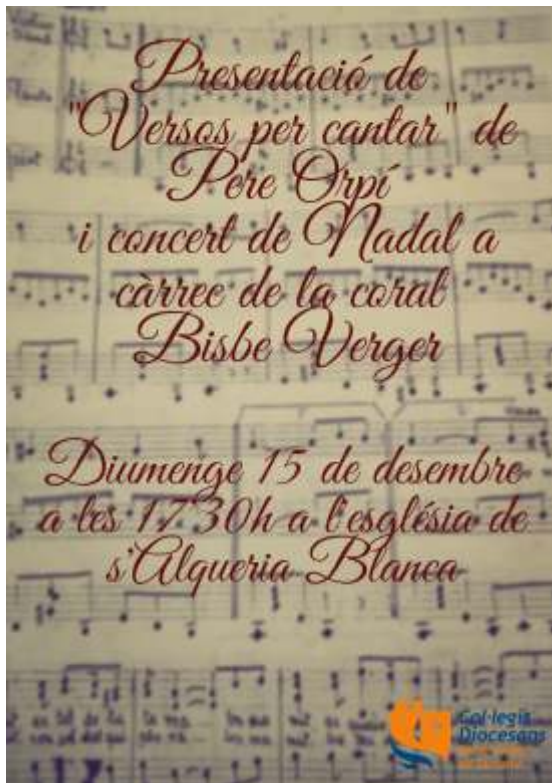 Presentació de
"Versos per cantar" de
Pere Orpí
i concert de Nadal a
càrrec de la coral
Bisbe Verger
Diumenge 15 de desembre
a les 17'30h a l'església de
s'Alqueria Blanca
Col·legis
Diocesans